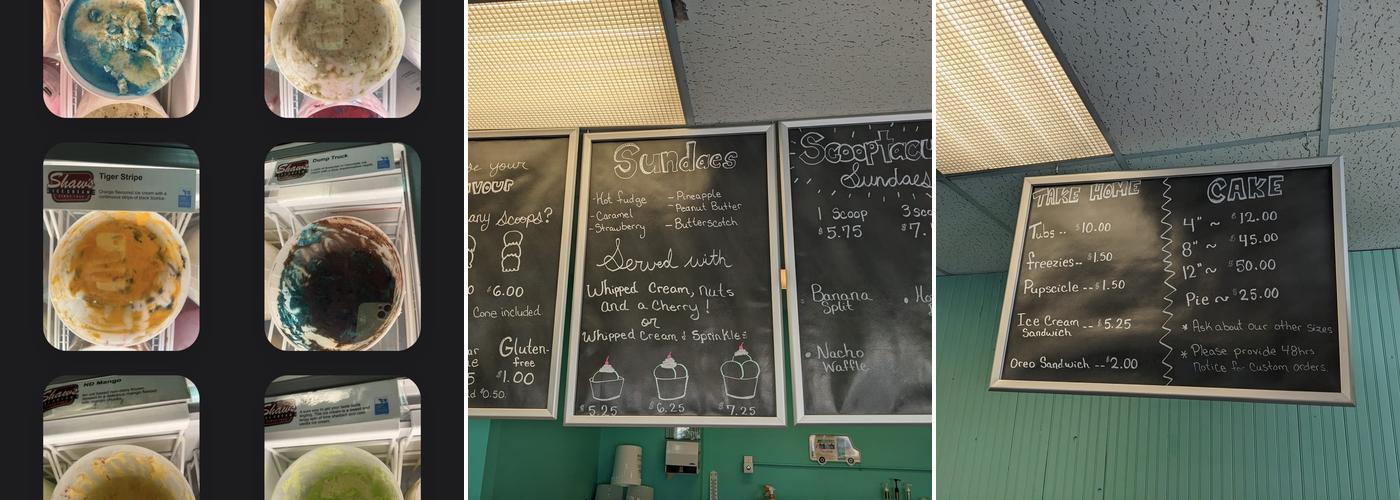 Shaw's
ICE CREAM
Tiger Stripe
Orange flavoured ice cream with a
continuous stripe of black licorice.
Shaw's
Dump Truck
ND Mango
Shaw's
Shaw's
se your
vour
any scoops?
$6.00
Cone included
Gluten-
free
$1.00
$0.50.
Sundaes
-Hot fudge
-Caramel
-Strawberry
-Pineapple
-Peanut Butter
-Butterscotch
Served with
Whipped Cream, nuts
and a Cherry!
or
Whipped Cream & Sprinkles
$5.25
$6.25
$7.25
Scooptacu
Sundaes
1 Scoop
$5.75
3 sco
$7.
• Banana
Split
• Ho
• Nacho
Waffle
TAKE HOME
Tubs -- $10.00
freezies-- $1.50
Pupscicle --$1.50
Ice Cream
Sandwich -- $5.25
Oreo Sandwich --$2.00
CAKE
4" ~ $12.00
8" ~ $45.00
12" ~ $50.00
Pie ~ $25.00
* Ask about our other sizes
* Please provide 48hrs
notice for Custom orders.